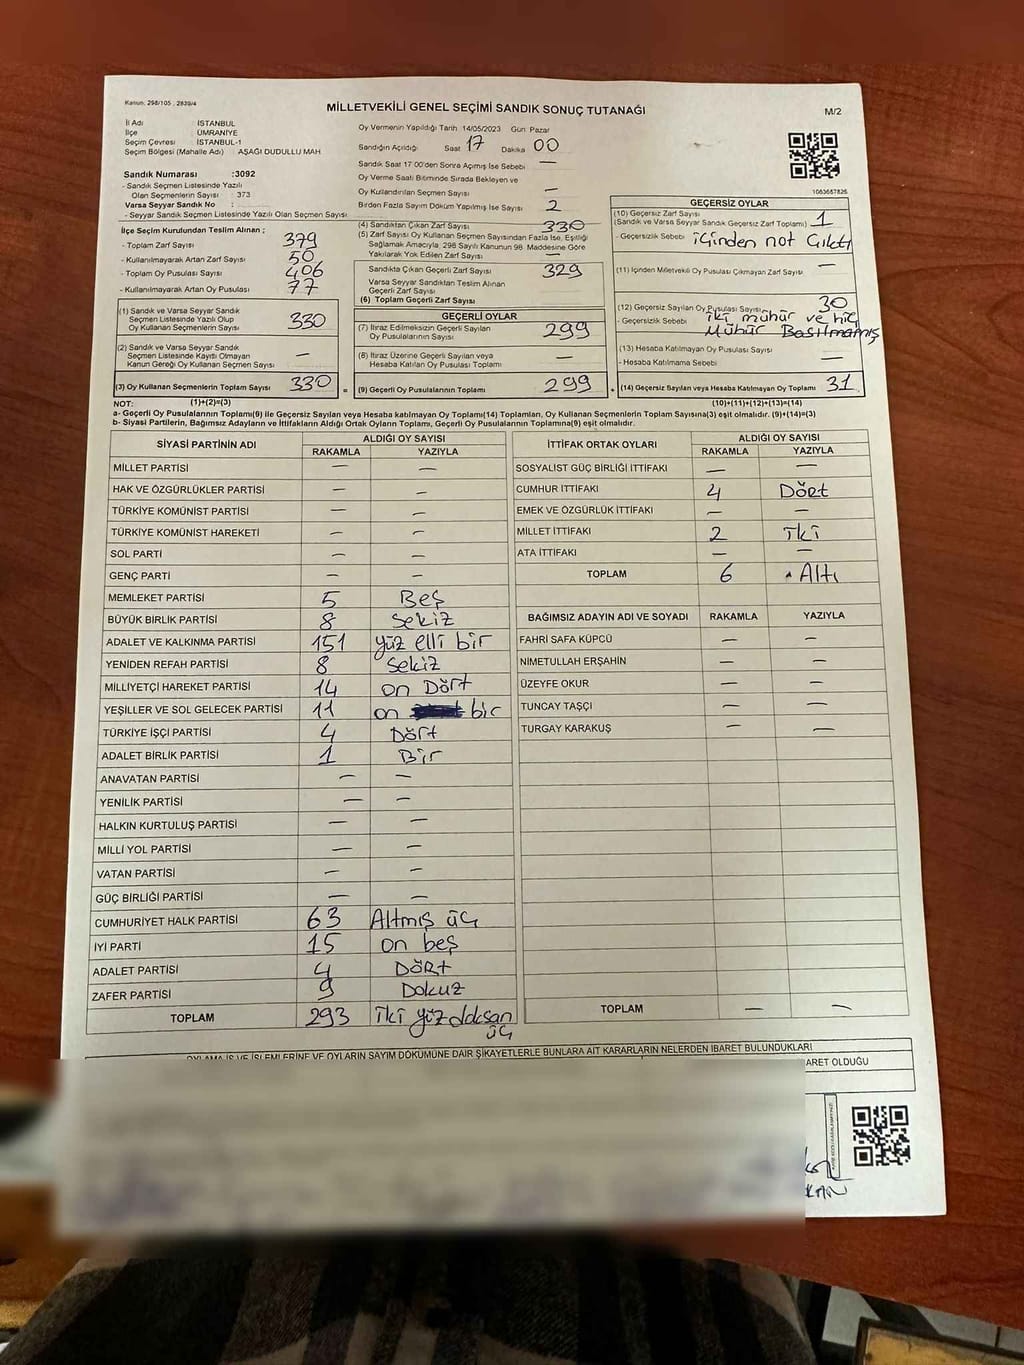 Kanun: 298/105 , 2839/4
MİLLETVEKİLİ GENEL SEÇİMİ SANDIK SONUÇ TUTANAĞI
M/2
İl Adı : İSTANBUL
İlçe : ÜMRANİYE
Seçim Çevresi : İSTANBUL-1
Seçim Bölgesi (Mahalle Adı) : AŞAĞI DUDULLU MAH
Sandık Numarası :3092
- Sandık Seçmen Listesinde Yazılı
Olan Seçmenlerin Sayısı : 373
Varsa Seyyar Sandık No :
- Seyyar Sandık Seçmen Listesinde Yazılı Olan Seçmen Sayısı
Oy Vermenin Yapıldığı Tarih 14/05/2023 Gün Pazar
Sandığın Açıldığı Saat 17 Dakika 00
Sandık Saat 17:00'den Sonra Açmış İse Sebebi —
Oy Verme Saati Bitiminde Sırada Bekleyen ve
Oy Kullandırılan Seçmen Sayısı —
Birden Fazla Sayım Döküm Yapılmış İse Sayısı 2
1063687826
İlçe Seçim Kurulundan Teslim Alınan ;
- Toplam Zarf Sayısı 379
- Kullanılmayarak Artan Zarf Sayısı 50
- Toplam Oy Pusulası Sayısı 406
- Kullanılmayarak Artan Oy Pusulası 77
(1) Sandık ve Varsa Seyyar Sandık
Seçmen Listesinde Yazılı Olup
Oy Kullanan Seçmenlerin Sayısı 330
(2) Sandık ve Varsa Seyyar Sandık
Seçmen Listesinde Kaydı Olmayan
Kanun Gereği Oy Kullanan Seçmen Sayısı —
(3) Oy Kullanan Seçmenlerin Toplam Sayısı 330 =
(4) Sandıktan Çıkan Zarf Sayısı 330
(5) Zarf Sayısı Oy Kullanan Seçmen Sayısından Fazla İse, Eşitliği
Sağlamak Amacıyla, 298 Sayılı Kanunun 98. Maddesine Göre
Yakılarak Yok Edilen Zarf Sayısı —
Sandıkta Çıkan Geçerli Zarf Sayısı 329
Varsa Seyyar Sandıktan Teslim Alınan
Geçerli Zarf Sayısı
(6) Toplam Geçerli Zarf Sayısı
GEÇERLİ OYLAR
(7) İtiraz Edilmeksizin Geçerli Sayılan
Oy Pusulalarının Sayısı 299
(8) İtiraz Üzerine Geçerli Sayılan veya
Hesaba Katılan Oy Pusulası Sayısı —
(9) Geçerli Oy Pusulalarının Toplamı 299 +
GEÇERSİZ OYLAR
(10) Geçersiz Zarf Sayısı
(Sandık ve Varsa Seyyar Sandık Geçersiz Zarf Toplamı) 1
- Geçersizlik Sebebi içinden not çıktı
(11) İçinden Milletvekili Oy Pusulası Çıkmayan Zarf Sayısı —
(12) Geçersiz Sayılan Oy Pusulası Sayısı 30
- Geçersizlik Sebebi iki mühür ve hiç
Mühür Basılmamış
(13) Hesaba Katılmayan Oy Pusulası Sayısı —
- Hesaba Katılmama Sebebi —
(14) Geçersiz Sayılan veya Hesaba Katılmayan Oy Toplamı 31
NOT: (1)+(2)=(3) (10)+(11)+(12)+(13)=(14)
a- Geçerli Oy Pusulalarının Toplamı(9) ile Geçersiz Sayılan veya Hesaba katılmayan Oy Toplamı(14) Toplamları, Oy Kullanan Seçmenlerin Toplam Sayısına(3) eşit olmalıdır. (9)+(14)=(3)
b- Siyasi Partilerin, Bağımsız Adayların ve İttifakların Aldığı Ortak Oyların Toplamı, Geçerli Oy Pusulalarının Toplamına(9) eşit olmalıdır.
SİYASİ PARTİNİN ADI ALDIĞI OY SAYISI
RAKAMLA YAZIYLA
MİLLET PARTİSİ — —
HAK VE ÖZGÜRLÜKLER PARTİSİ — —
TÜRKİYE KOMÜNİST PARTİSİ — —
TÜRKİYE KOMÜNİST HAREKETİ — —
SOL PARTİ — —
GENÇ PARTİ — —
MEMLEKET PARTİSİ 5 Beş
BÜYÜK BİRLİK PARTİSİ 8 Sekiz
ADALET VE KALKINMA PARTİSİ 151 yüz elli bir
YENİDEN REFAH PARTİSİ 8 Sekiz
MİLLİYETÇİ HAREKET PARTİSİ 14 on Dört
YEŞİLLER VE SOL GELECEK PARTİSİ 11 on bir
TÜRKİYE İŞÇİ PARTİSİ 4 Dört
ADALET BİRLİK PARTİSİ 1 Bir
ANAVATAN PARTİSİ — —
YENİLİK PARTİSİ — —
HALKIN KURTULUŞ PARTİSİ — —
MİLLİ YOL PARTİSİ — —
VATAN PARTİSİ — —
GÜÇ BİRLİĞİ PARTİSİ — —
CUMHURİYET HALK PARTİSİ 63 Altmış üç
İYİ PARTİ 15 on beş
ADALET PARTİSİ 4 Dört
ZAFER PARTİSİ 9 Dokuz
TOPLAM 293 iki yüz doksan
üç
İTTİFAK ORTAK OYLARI ALDIĞI OY SAYISI
RAKAMLA YAZIYLA
SOSYALİST GÜÇ BİRLİĞİ İTTİFAKI — —
CUMHUR İTTİFAKI 4 Dört
EMEK VE ÖZGÜRLÜK İTTİFAKI — —
MİLLET İTTİFAKI 2 iki
ATA İTTİFAKI — —
TOPLAM 6 Altı
BAĞIMSIZ ADAYIN ADI VE SOYADI RAKAMLA YAZIYLA
FAHRİ SAFA KÜPCÜ — —
NİMETULLAH ERŞAHİN — —
ÜZEYFE OKUR — —
TUNCAY TAŞÇI — —
TURGAY KARAKUŞ — —
TOPLAM — —
OYLAMA İŞ VE İŞLEMLERİNE VE OYLARIN SAYIM DÖKÜMÜNE DAİR ŞİKAYETLERLE BUNLARA AİT KARARLARIN NELERDEN İBARET BULUNDUKLARI
BARET OLDUĞU